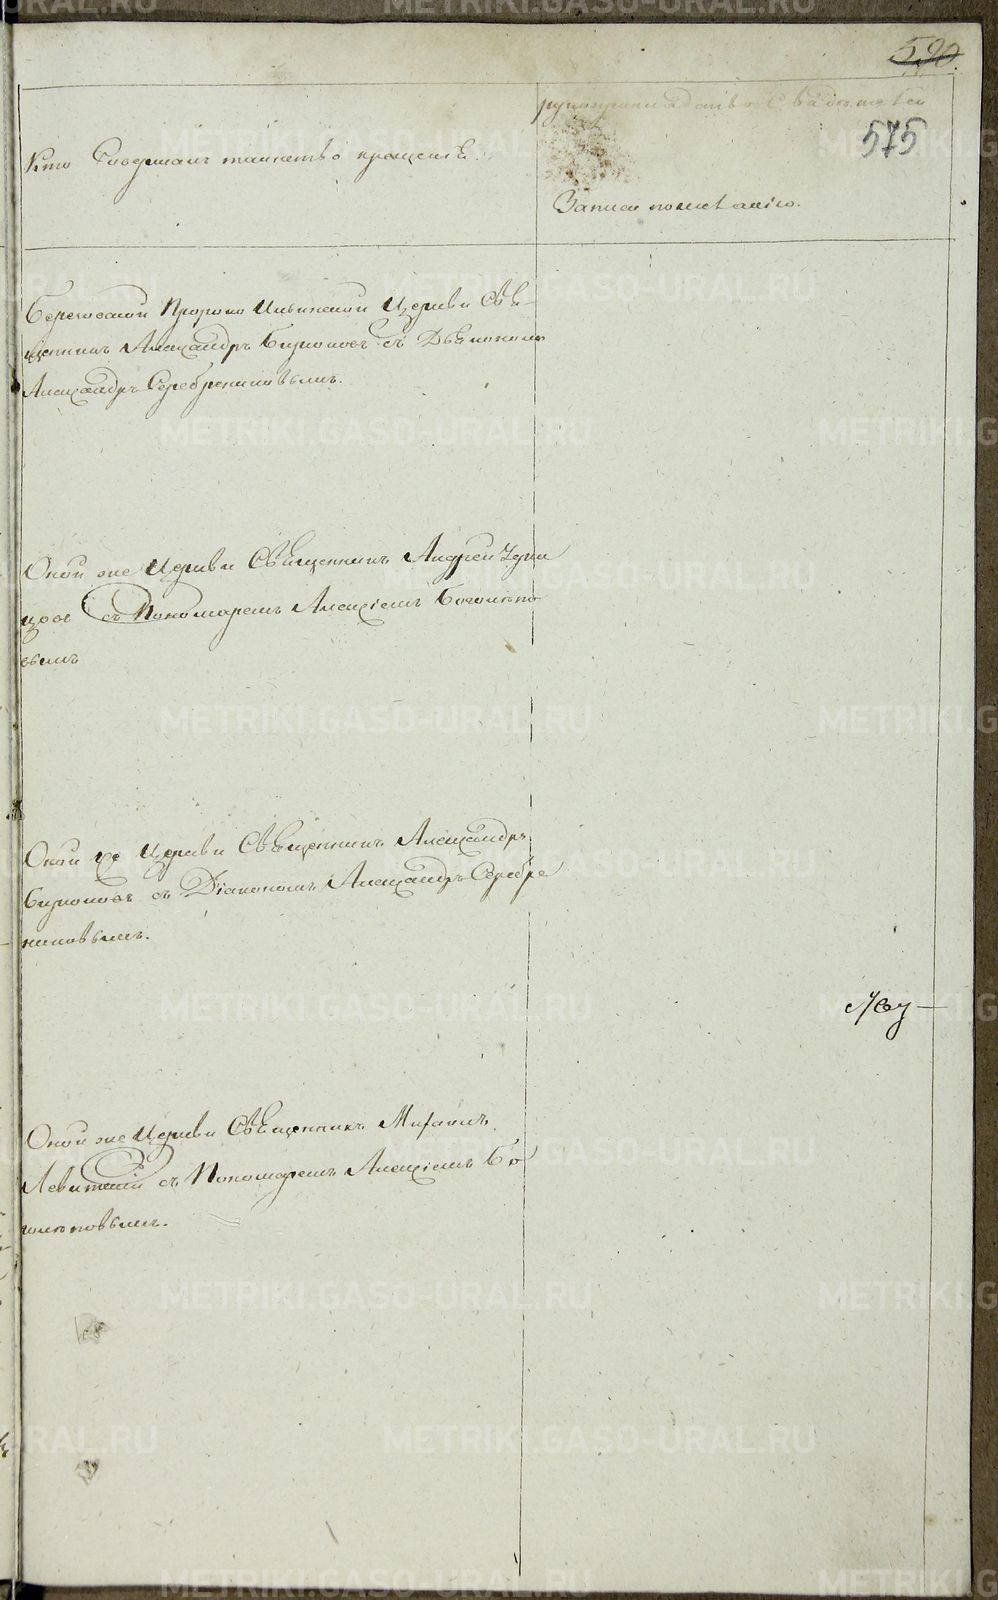 590
575
Кто Совершалъ таинство крещенія.
рукоприкладство Свидетелей
Записи по желанію.
Березовской Пророко Ильинской Церкви Свя-
щенникъ Александръ Бирюковъ съ Дьякономъ
Александръ Серебренниковымъ.
Оной же Церкви Священникъ Андрей
съ Пономаремъ Алексіемъ Боголѣпо
вымъ
Оной же Церкви Священникъ Александръ
Бирюковъ съ Діакономъ Александръ Серебре
никовымъ.
Оной же Церкви Священникъ
Левитскій съ Пономаремъ Алексіемъ Бо
голѣповымъ.
METRIKI.GASO-URAL.RU